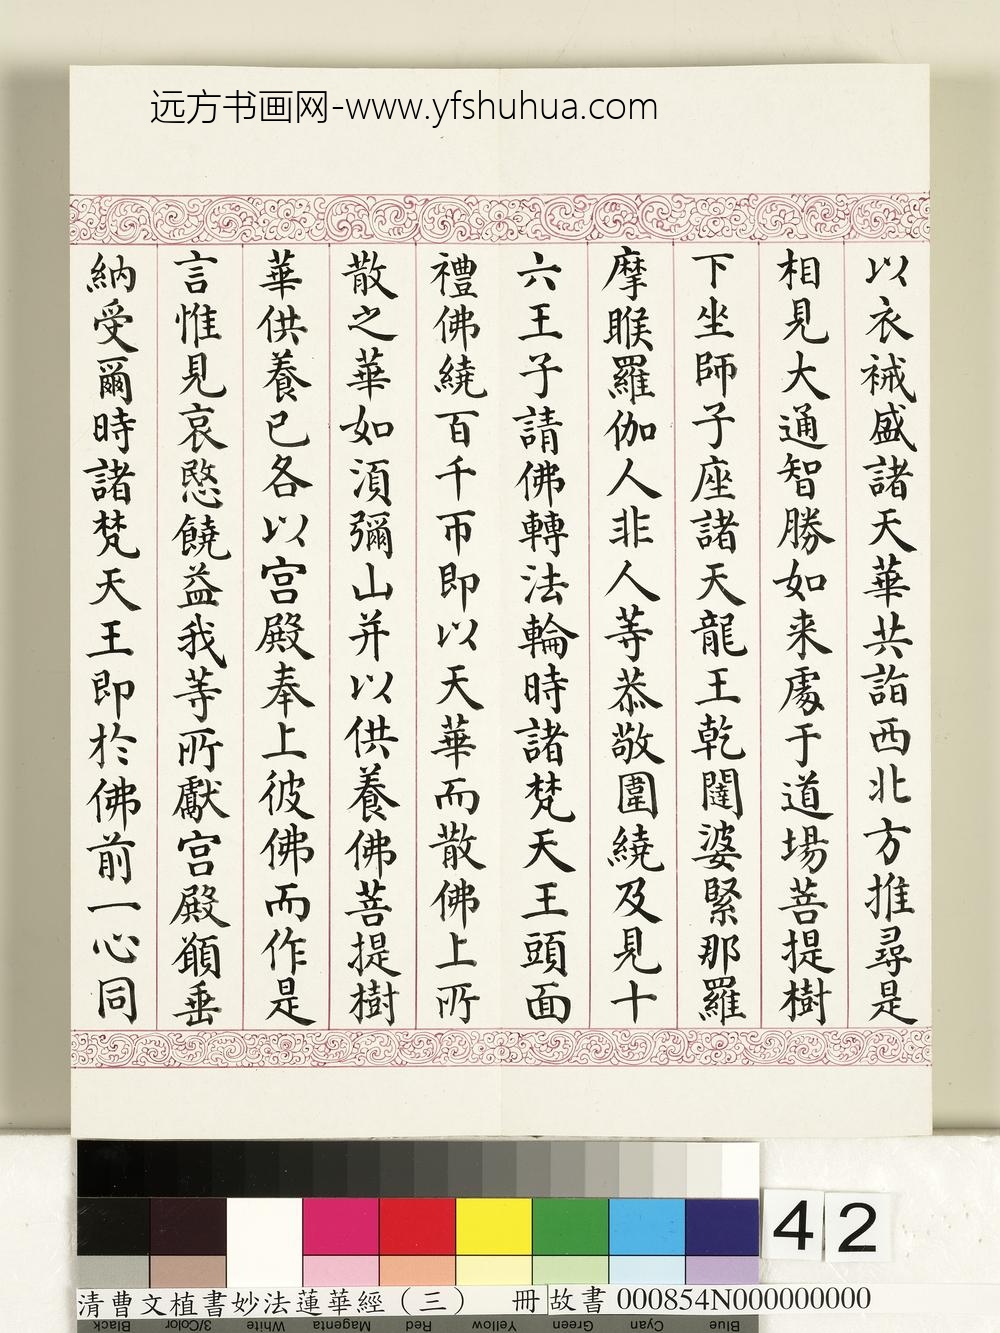 远方书画网-www.yfshuhua.com
以衣祴盛諸天華共詣西北方推尋是
相見大通智勝如来處于道場菩提樹
下坐師子座諸天龍王乾闥婆緊那羅
摩睺羅伽人非人等恭敬圍繞及見十
六王子請佛轉法輪時諸梵天王頭面
禮佛繞百千帀即以天華而散佛上所
散之華如湏彌山并以供養佛菩提樹
華供養已各以宫殿奉上彼佛而作是
言惟見哀愍饒益我等所獻宫殿願垂
納受爾時諸梵天王即於佛前一心同
42
清曹文植書妙法蓮華經（三） 冊 故書 000854N000000000
Black 3/Color White Magenta Red Yellow Green Cyan Blue